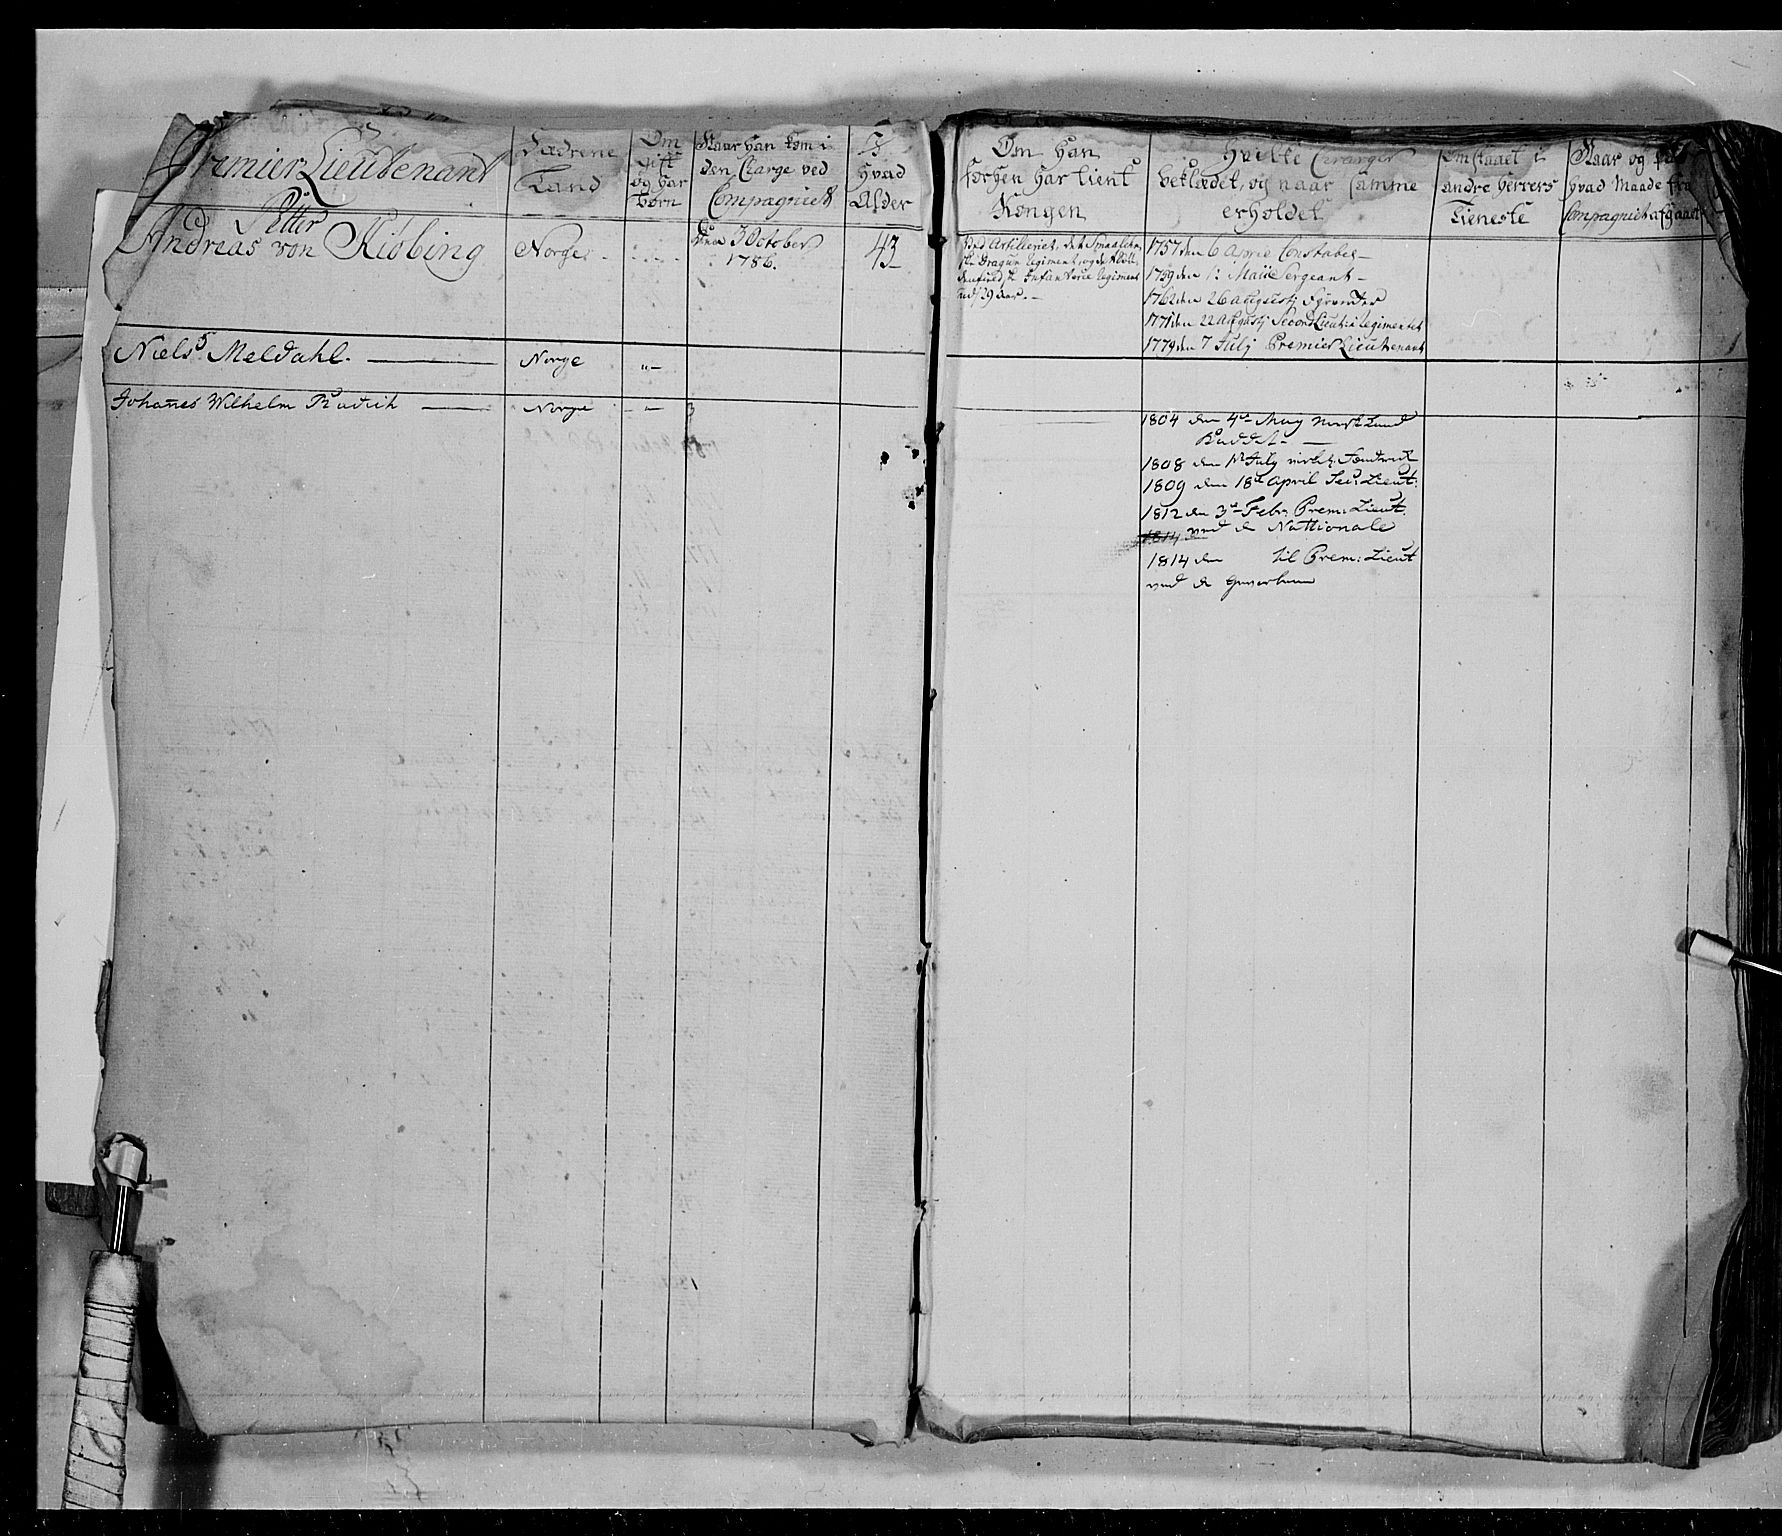 Premier Lieutenant
Fædrene
Land
Om
gift
og har
børn
Naar han kom i
den Charge ved
Compagniet
I
hvad
Alder
Om han
forhen har tient
Kongen
Hvilke Charger
beklædet, og naar samme
erholdet
Om staaet i
andre Herrers
Tieneste
Naar og paa
hvad Maade fra
Compagniet afgaaet
Petter
Andreas von Kiobing
Norge
den 3 October
1786.
43
Ved Artilleriet, det Smaalehn
ske Dragun Regiment, og det
Infanterie Regiment
ud/29 aar.
1757 den 6 April Constabel
1759 den 1: Maii Sergeant
1762 den 26 Augusti
1771 den 22 Augusti Second Lieut: i Regimentet
1779 den 7 Julj Premier Lieutenant
Niels S. Meldahl.
Norge
Johanes Wilhelm
Norge
1804 den 4de May
1808 den 1te July
1809 den 18de April Sec: Lieut:
1812 den 3de Febr: Prem: Lieut:
1814 ved de Nattionale
1814 den til Prem: Lieut
ved de